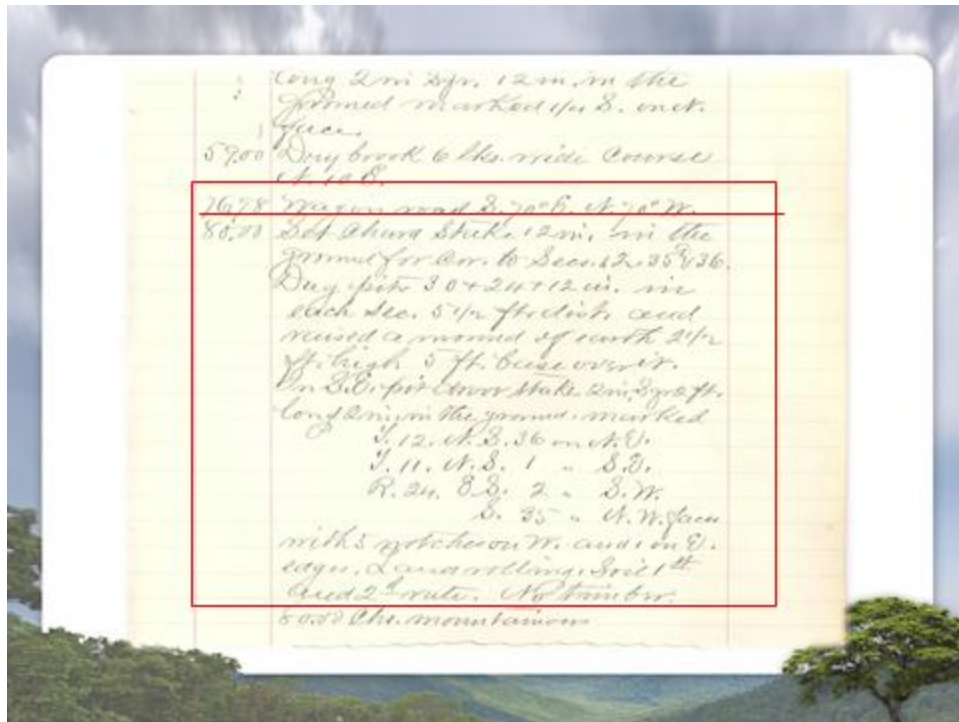 long 2 in sqr. 12 in. in the
ground marked 1/4 S. on N.
face.
59.00 Dry brook 6 lks. wide Course
N. 10 E.
76.78 Wagon road S. 70° E. N. 70° W.
80.00 Set Chard Stake 12 in. in the
ground for Cor. to Secs. 1. 2. 35 & 36.
Dug pits 30 + 24 + 12 in. in
each Sec. 5 1/2 ft. dist. and
raised a mound of earth 2 1/2
ft. high 5 ft. base over it.
In S.E. pit drove stake 2 in. Sqr 2 ft.
long 12 in. in the ground marked
T. 12. N. S. 36 on N.E.
T. 11. N. S. 1 " S.E.
R. 24. E S. 2 " S.W.
S. 35 " N.W. faces
with 5 notches on W. and 1 on E.
edges. Land rolling. Soil 1st
and 2d rate. No timber.
80.00 Chs. mountainous